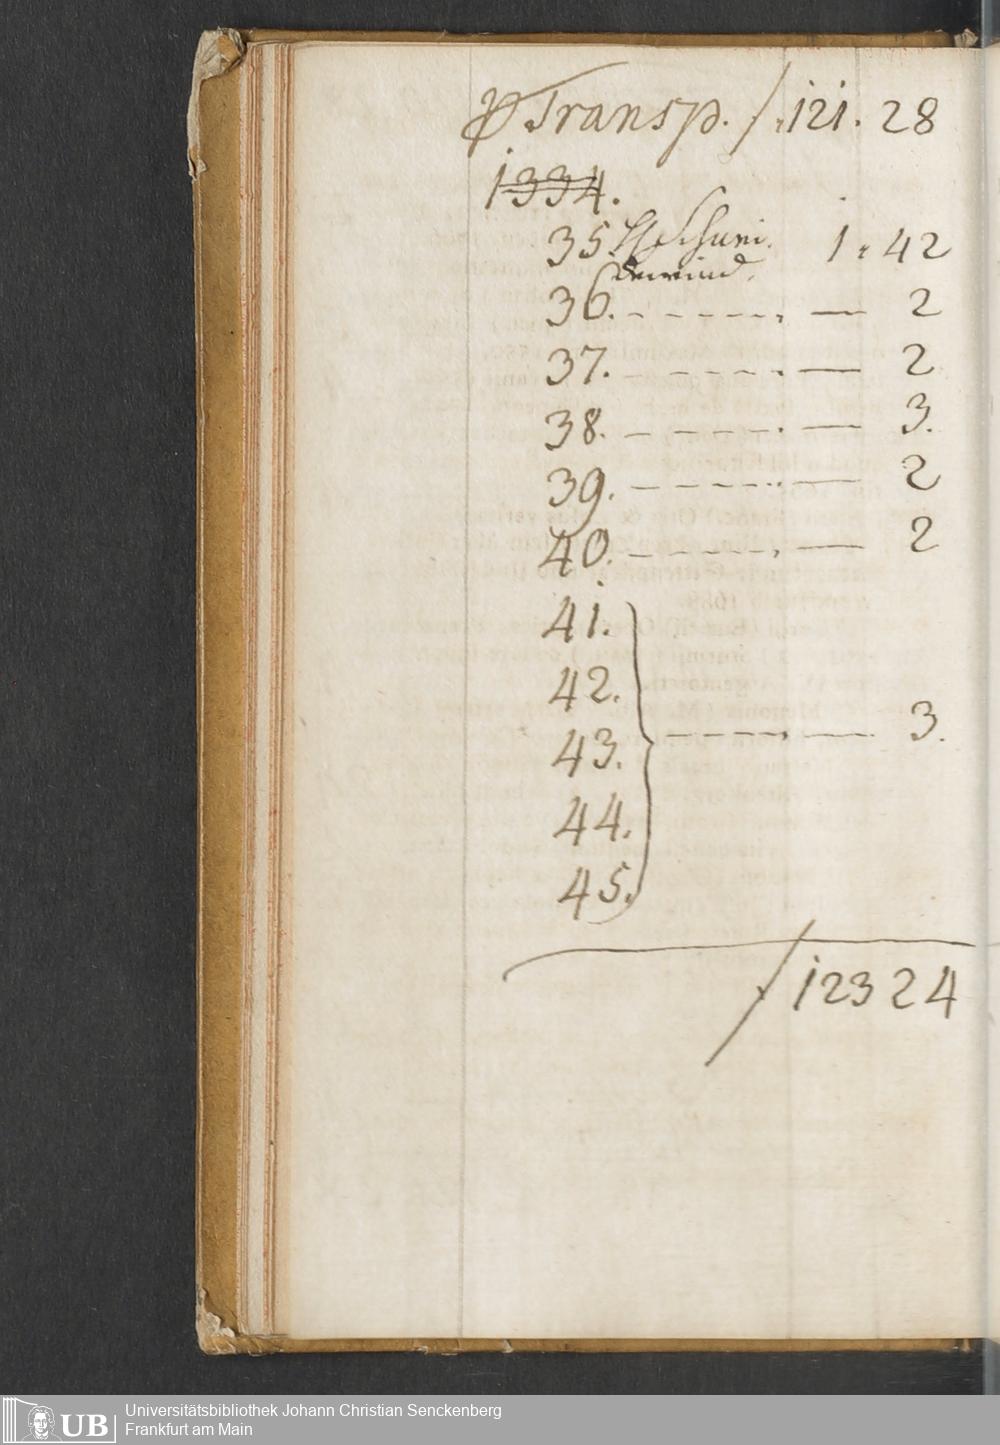 Transp. / 121. 28
1334.
35. 1 " 42
36. - - - - - - , — 2
37. - - - - - - . — 2
38. - - - - - . — 3.
39. - - - - - - — 2
40. - - - - - - , — 2
41.
42.
43. - - - - - - — 3.
44.
45.
/ 123 24
UB
Universitätsbibliothek Johann Christian Senckenberg
Frankfurt am Main